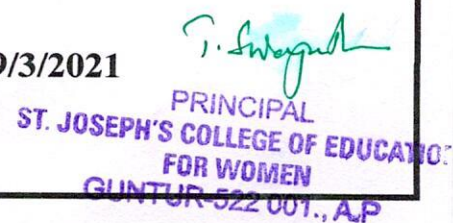 /3/2021
PRINCIPAL
ST. JOSEPH'S COLLEGE OF EDUCATIO
FOR WOMEN
GUNTUR-522 001., A.P